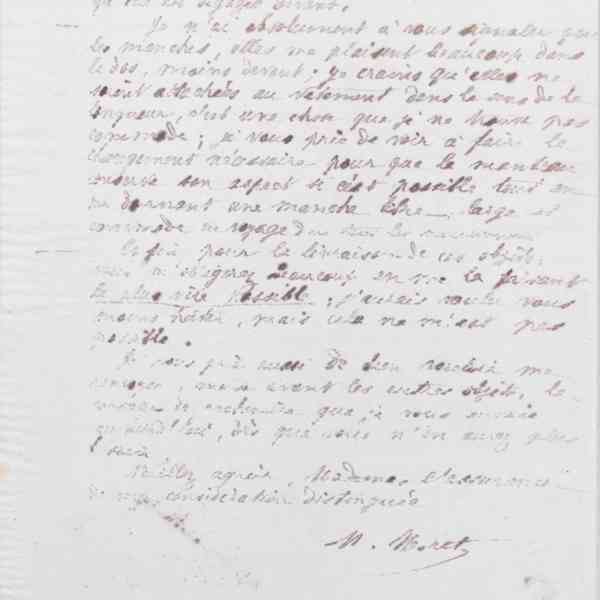 Je n'ai absolument à vous signaler que
les manches, elles me plaisent beaucoup dans
le dos, moins devant ; je crains qu'elles ne
soient attachées au vêtement dans le sens de la
longueur, c'est une chose que je ne trouve pas
commode ; je vous prie de voir à faire le
changement nécessaire pour que le manteau
conserve son aspect si c'est possible tout en
me donnant une manche libre, large et
commode
Enfin pour la livraison de ces objets,
vous m'obligerez beaucoup en me la faisant
le plus vite possible ; j'aurais voulu vous
moins hâter, mais cela ne m'est pas
possible.
Je vous prie aussi de bien vouloir me
renvoyer, même avant les autres objets, la
que je vous envoie
aujourd'hui, dès que vous n'en aurez plus
Veuillez agréer, Madame, l'assurance
de ma considération distinguée
M. Moret